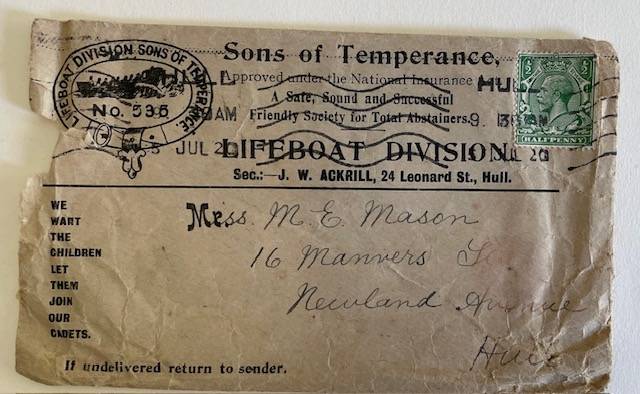 Sons of Temperance,
Approved under the National Insurance
A Safe, Sound and Successful
Friendly Society for Total Abstainers.
LIFEBOAT DIVISION
Sec.:— J. W. ACKRILL, 24 Leonard St., Hull.
LIFEBOAT DIVISION SONS OF TEMPERANCE.
No. 535
HULL
JUL 20
HALFPENNY
WE
WANT
THE
CHILDREN
LET
THEM
JOIN
OUR
CADETS.
M. E. Mason
16 Manvers
Newland Avenue
Hull
If undelivered return to sender.